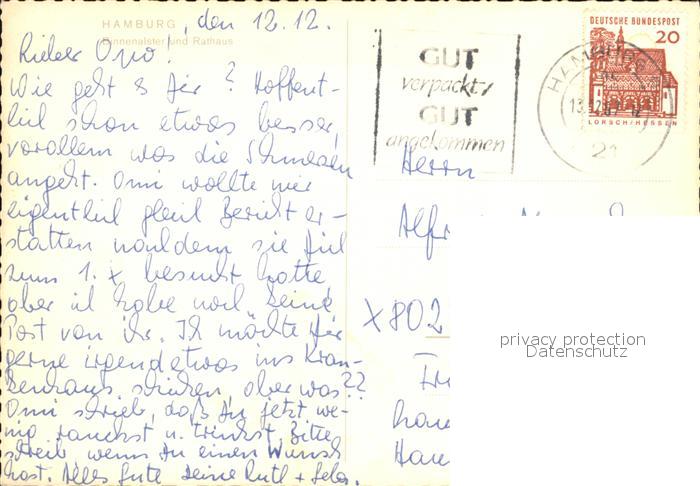 HAMBURG, den 12.12.
Binnenalster und Rathaus
Lieber Opa!
Wie geht es Dir? Hoffent-
lich schon etwas besser,
vorallem was die Schmerzen
angeht. Omi wollte mir
eigentlich gleich Bericht er-
statten nachdem sie Dich
zum 1. x besucht hatte
aber ich habe noch keine
Post von ihr. Ich möchte Dir
gerne irgendetwas ins Kran-
kenhaus schicken, aber was??
Omi schrieb, daß Du jetzt we-
nig rauchst u. trinkst. Bitte
schreib wenn Du einen Wunsch
hast. Alles Gute Deine Ruth +
GUT
verpackt,
GUT
angekommen
DEUTSCHE BUNDESPOST
20
LORSCH/HESSEN
HAMBURG
13.12.67
21
Herrn
Alfr
X 802
privacy protection
Datenschutz
Hau